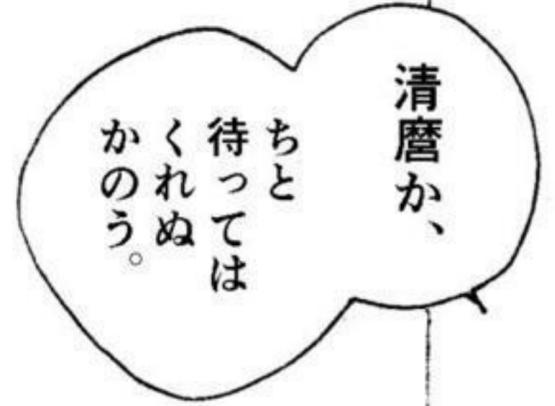 清麿か、
ちと
待っては
くれぬ
かのう。